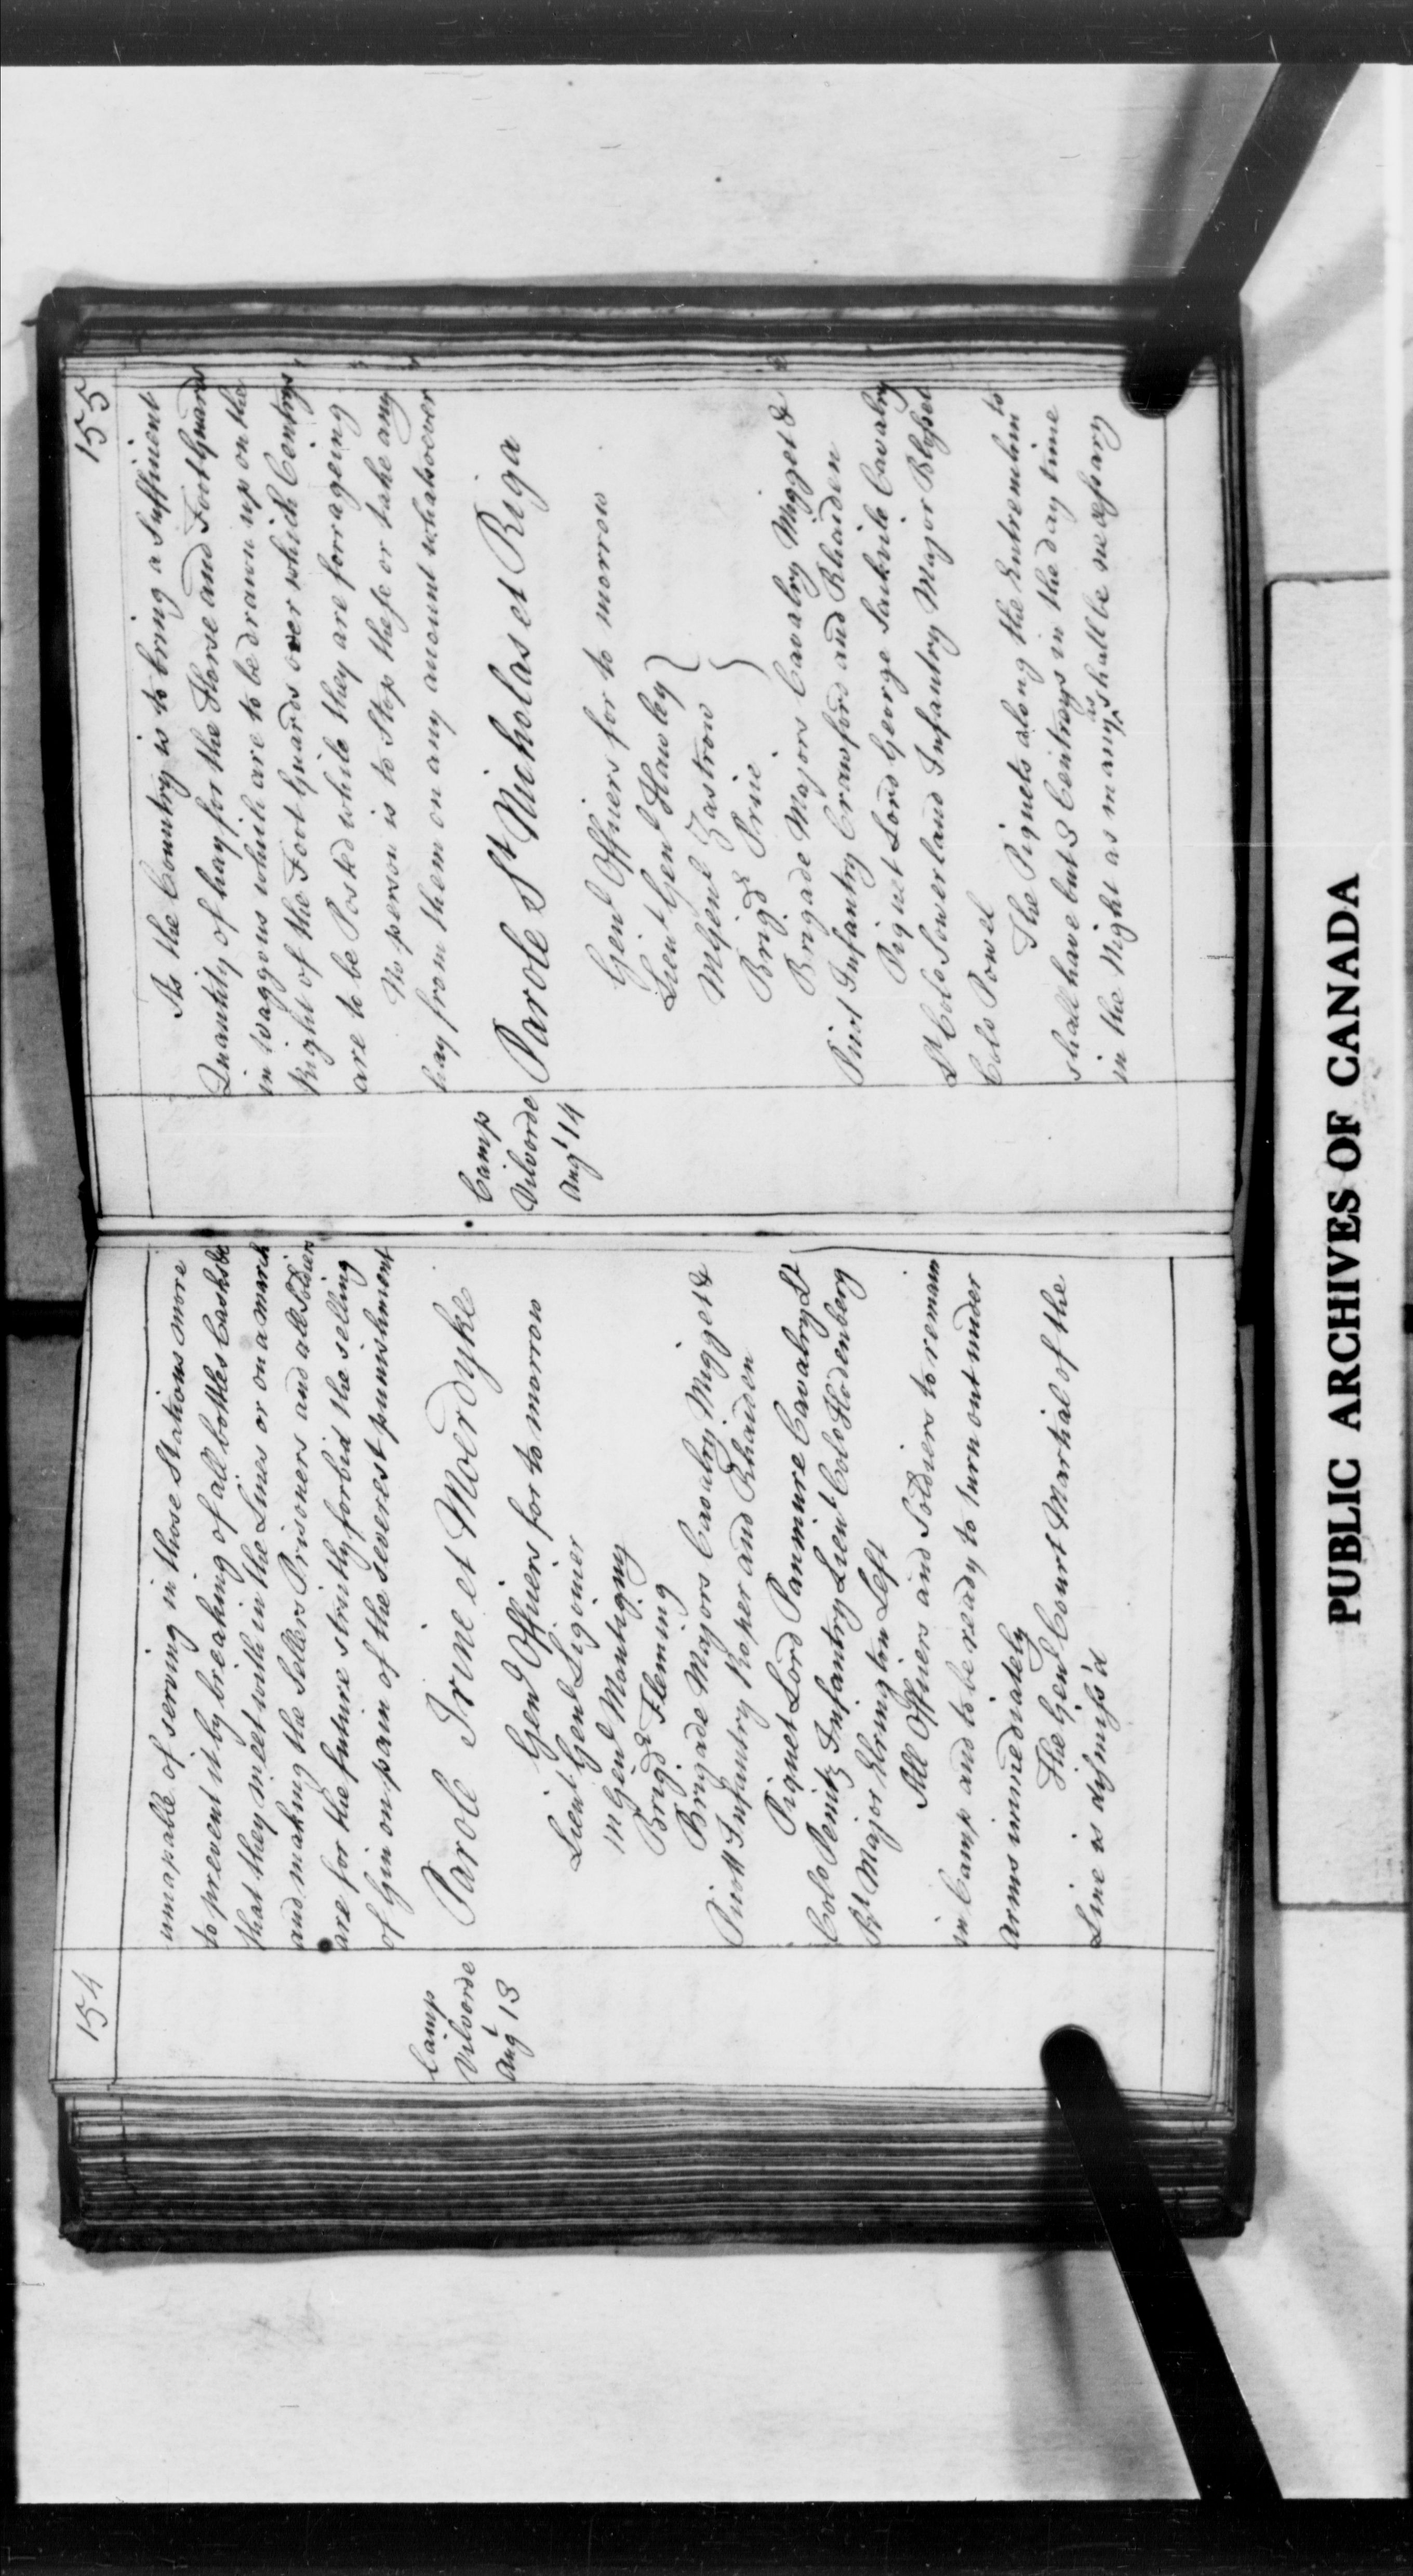 154
unnapable of serving in those Stations more
to prevent it by breaking of all bottles Casks &c
that they meet with in the Lines or on a march
and making the Sellers Prisoners and all Soldiers
are for the future strictly forbid the selling
of Gin on pain of the severest punishment
Camp
Vilvorde
Augt 13
Parole Irine et Moerdyke
Genl Officers for to morrow
Lieut Genl Ligonier
M Genl Montigny
Brigd Fleming
Brigade Majors Cavalry Migget &
Piott Infantry Roper and Rhaiden
Piquet Lord Panmure Cavalry Lt
Colo Penitz Infantry Lieut Colo Hodenberg
Rt Major Elrington Left
All Officers and Soldiers to remain
in Camp and to be ready to turn out under
Arms immediately
The Genl Court Martial of the
Line is dismiss'd
155
As the Country is to bring a Suffinent
Quantity of hay for the Horse and Foot Guards
in waggons which are to be drawn up on the
Right of the Foot Guards over which Centrys
are to be Posted while they are forrageing
No person is to Stop these or take any
hay from them on any amount whatsoever
Camp
Vilvorde
Augt 14
Parole St Nicholas et Riga
Genl Officers for to morrow
Lieut Genl Hawley
M Genl Zastrow
Brigd Price
Brigade Majors Cavalry Migget &
Piot Infantry Crawford and Rhaiden
Piquet Lord George Sackvile Cavalry
Lt Colo Sowerland Infantry Major Blesset
Colo Powel
The Piquets along the Entrenchmts
shall have but 3 Centrys in the day time
in the Night as many as shall be necessary
PUBLIC ARCHIVES OF CANADA